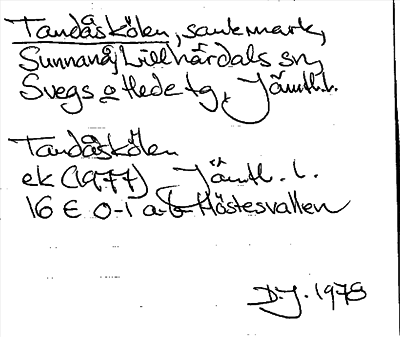 Tandåskölen, sankmark,
Sunnanåj Lillhärdals sn,
Svegs o Hede tg, Jämtl.l.
Tandåskölen
ek (1977) Jämtl. l.
16 E 0-1 a-b Höstesvallen
D.J. 1978